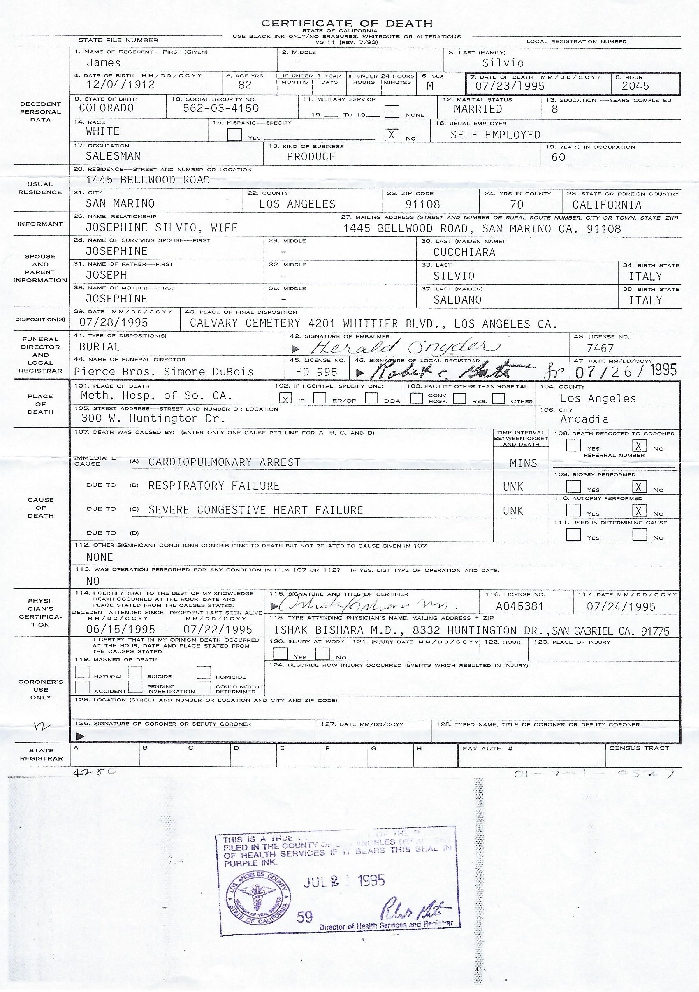 CERTIFICATE OF DEATH
STATE OF CALIFORNIA
USE BLACK INK ONLY/NO ERASURES, WHITEOUTS OR ALTERATIONS
STATE FILE NUMBER
LOCAL REGISTRATION NUMBER
DECEDENT PERSONAL DATA
1. NAME OF DECEDENT—FIRST (GIVEN) 2. MIDDLE 3. LAST (FAMILY)
James Silvio
4. DATE OF BIRTH MM/DD/CCYY 5. AGE YRS IF UNDER 1 YEAR MONTHS DAYS IF UNDER 24 HOURS HOURS MINUTES 6. SEX 7. DATE OF DEATH MM/DD/CCYY 8. HOUR
1912 82 M 07/23/1995 2045
9. STATE OF BIRTH 10. SOCIAL SECURITY NO. 11. MILITARY SERVICE 12. MARITAL STATUS 13. EDUCATION—YEARS COMPLETED
COLORADO 19 TO 19 NONE MARRIED 8
14. RACE 15. HISPANIC—SPECIFY 16. USUAL EMPLOYER
WHITE YES X NO SELF EMPLOYED
17. OCCUPATION 18. KIND OF BUSINESS 19. YEARS IN OCCUPATION
SALESMAN PRODUCE 60
USUAL RESIDENCE
20. RESIDENCE—STREET AND NUMBER OR LOCATION
1445 BELLWOOD ROAD
21. CITY 22. COUNTY 23. ZIP CODE 24. YRS IN COUNTY 25. STATE OR FOREIGN COUNTRY
SAN MARINO LOS ANGELES 91108 70 CALIFORNIA
INFORMANT
26. NAME, RELATIONSHIP 27. MAILING ADDRESS (STREET AND NUMBER OR RURAL ROUTE NUMBER, CITY OR TOWN, STATE, ZIP)
JOSEPHINE SILVIO, WIFE 1445 BELLWOOD ROAD, SAN MARINO CA. 91108
SPOUSE AND PARENT INFORMATION
28. NAME OF SURVIVING SPOUSE—FIRST 29. MIDDLE 30. LAST (MAIDEN NAME)
JOSEPHINE - CUCCHIARA
31. NAME OF FATHER—FIRST 32. MIDDLE 33. LAST 34. BIRTH STATE
JOSEPH - SILVIO ITALY
35. NAME OF MOTHER—FIRST 36. MIDDLE 37. LAST (MAIDEN) 38. BIRTH STATE
JOSEPHINE - SALDANO ITALY
DISPOSITION(S)
39. DATE MM/DD/CCYY 40. PLACE OF FINAL DISPOSITION
07/28/1995 CALVARY CEMETERY 4201 WHITTIER BLVD., LOS ANGELES CA.
FUNERAL DIRECTOR AND LOCAL REGISTRAR
41. TYPE OF DISPOSITION(S) 42. SIGNATURE OF EMBALMER 43. LICENSE NO.
BURIAL Herald Snyder 7467
44. NAME OF FUNERAL DIRECTOR 45. LICENSE NO. 46. SIGNATURE OF LOCAL REGISTRAR 47. DATE MM/DD/CCYY
Pierce Bros. Simone DuBois 07/26/1995
PLACE OF DEATH
101. PLACE OF DEATH 102. IF HOSPITAL, SPECIFY ONE: 103. FACILITY OTHER THAN HOSPITAL 104. COUNTY
Meth. Hosp. of So. CA. X IP ER/OP DOA CONV. HOSP. RES. OTHER Los Angeles
105. STREET ADDRESS—STREET AND NUMBER OR LOCATION 106. CITY
300 W. Huntington Dr. Arcadia
CAUSE OF DEATH
107. DEATH WAS CAUSED BY: (ENTER ONLY ONE CAUSE PER LINE FOR A, B, C, AND D) TIME INTERVAL BETWEEN ONSET AND DEATH 108. DEATH REPORTED TO CORONER
YES X NO
REFERRAL NUMBER
IMMEDIATE CAUSE (A) CARDIOPULMONARY ARREST MINS
109. BIOPSY PERFORMED
DUE TO (B) RESPIRATORY FAILURE UNK YES X NO
110. AUTOPSY PERFORMED
DUE TO (C) SEVERE CONGESTIVE HEART FAILURE UNK YES X NO
111. USED IN DETERMINING CAUSE
DUE TO (D) YES NO
112. OTHER SIGNIFICANT CONDITIONS CONTRIBUTING TO DEATH BUT NOT RELATED TO CAUSE GIVEN IN 107
NONE
113. WAS OPERATION PERFORMED FOR ANY CONDITION IN ITEM 107 OR 112? IF YES, LIST TYPE OF OPERATION AND DATE.
NO
PHYSICIAN'S CERTIFICATION
114. I CERTIFY THAT TO THE BEST OF MY KNOWLEDGE DEATH OCCURRED AT THE HOUR, DATE AND PLACE STATED FROM THE CAUSES STATED.
115. SIGNATURE AND TITLE OF CERTIFIER 116. LICENSE NO. 117. DATE MM/DD/CCYY
A045381 07/24/1995
DECEDENT ATTENDED SINCE DECEDENT LAST SEEN ALIVE
MM/DD/CCYY MM/DD/CCYY
06/15/1995 07/22/1995
118. TYPE ATTENDING PHYSICIAN'S NAME, MAILING ADDRESS + ZIP
ISHAK BISHARA M.D., 8332 HUNTINGTON DR., SAN GABRIEL CA. 91775
CORONER'S USE ONLY
I CERTIFY THAT IN MY OPINION DEATH OCCURRED AT THE HOUR, DATE AND PLACE STATED FROM THE CAUSES STATED.
120. INJURY AT WORK 121. INJURY DATE MM/DD/CCYY 122. HOUR 123. PLACE OF INJURY
YES NO
119. MANNER OF DEATH
NATURAL SUICIDE HOMICIDE
ACCIDENT PENDING INVESTIGATION COULD NOT BE DETERMINED
124. DESCRIBE HOW INJURY OCCURRED (EVENTS WHICH RESULTED IN INJURY)
125. LOCATION (STREET AND NUMBER OR LOCATION AND CITY AND ZIP CODE)
126. SIGNATURE OF CORONER OR DEPUTY CORONER 127. DATE MM/DD/CCYY 128. TYPED NAME, TITLE OF CORONER OR DEPUTY CORONER
STATE REGISTRAR
A B C D E F G H FAX AUTH. # CENSUS TRACT
THIS IS A TRUE
FILED IN THE COUNTY OF LOS ANGELES
OF HEALTH SERVICES IF IT BEARS THIS SEAL IN
PURPLE INK.
1995
59
Director of Health Services and Registrar